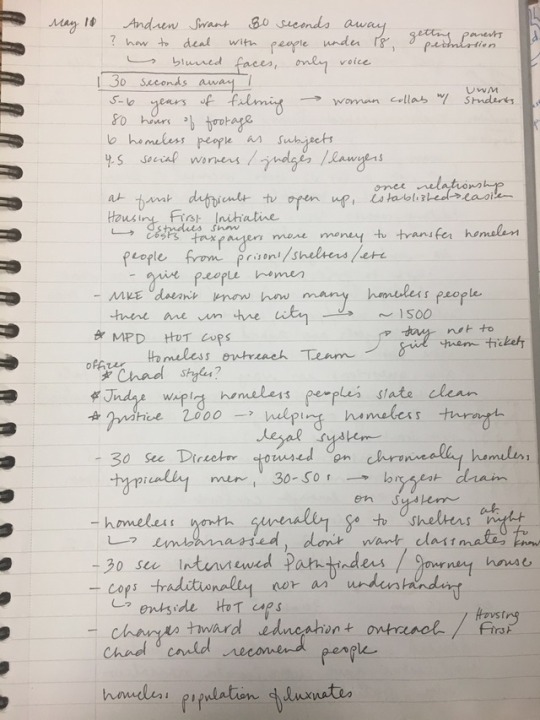 May 10 Andrew Swant 30 seconds away
? how to deal with people under 18, getting parents permission
↳ blurred faces, only voice
30 seconds away
5-6 years of filming → woman collab w/ UWM students
80 hours of footage
6 homeless people as subjects
4.5 social workers / judges / lawyers
at first difficult to open up, once relationship established → easier
Housing First Initiative
↳ studies show costs taxpayers more money to transfer homeless
people from prisons/shelters/etc
- give people homes
- MKE doesn't know how many homeless people
there are in the city → ~ 1500
* MPD HOT COPS
Homeless Outreach Team → try not to give them tickets
* officer Chad Styles?
* Judge wiping homeless people's slate clean
* Justice 2000 → helping homeless through
legal system
- 30 sec Director focused on chronically homeless
typically men, 30-50s → biggest drain
on system
- homeless youth generally go to shelters at night
↳ embarrassed, don't want classmates to know
- 30 sec Interviewed Pathfinders / Journey house
- cops traditionally not as understanding
↳ outside HOT cops
- changes toward education + outreach / Housing First
Chad could recomend people
homeless population fluxuates